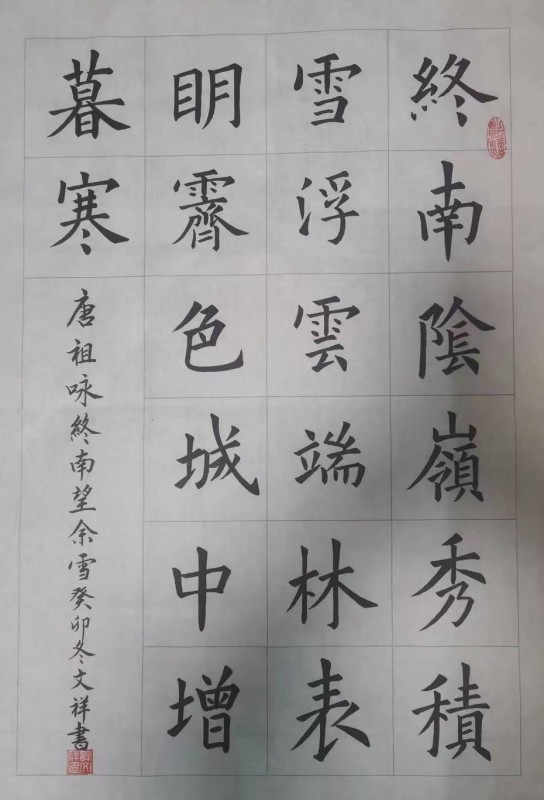 終南陰嶺秀積
雪浮雲端林表
明霽色城中增
暮寒
唐祖咏終南望余雪癸卯冬文祥書